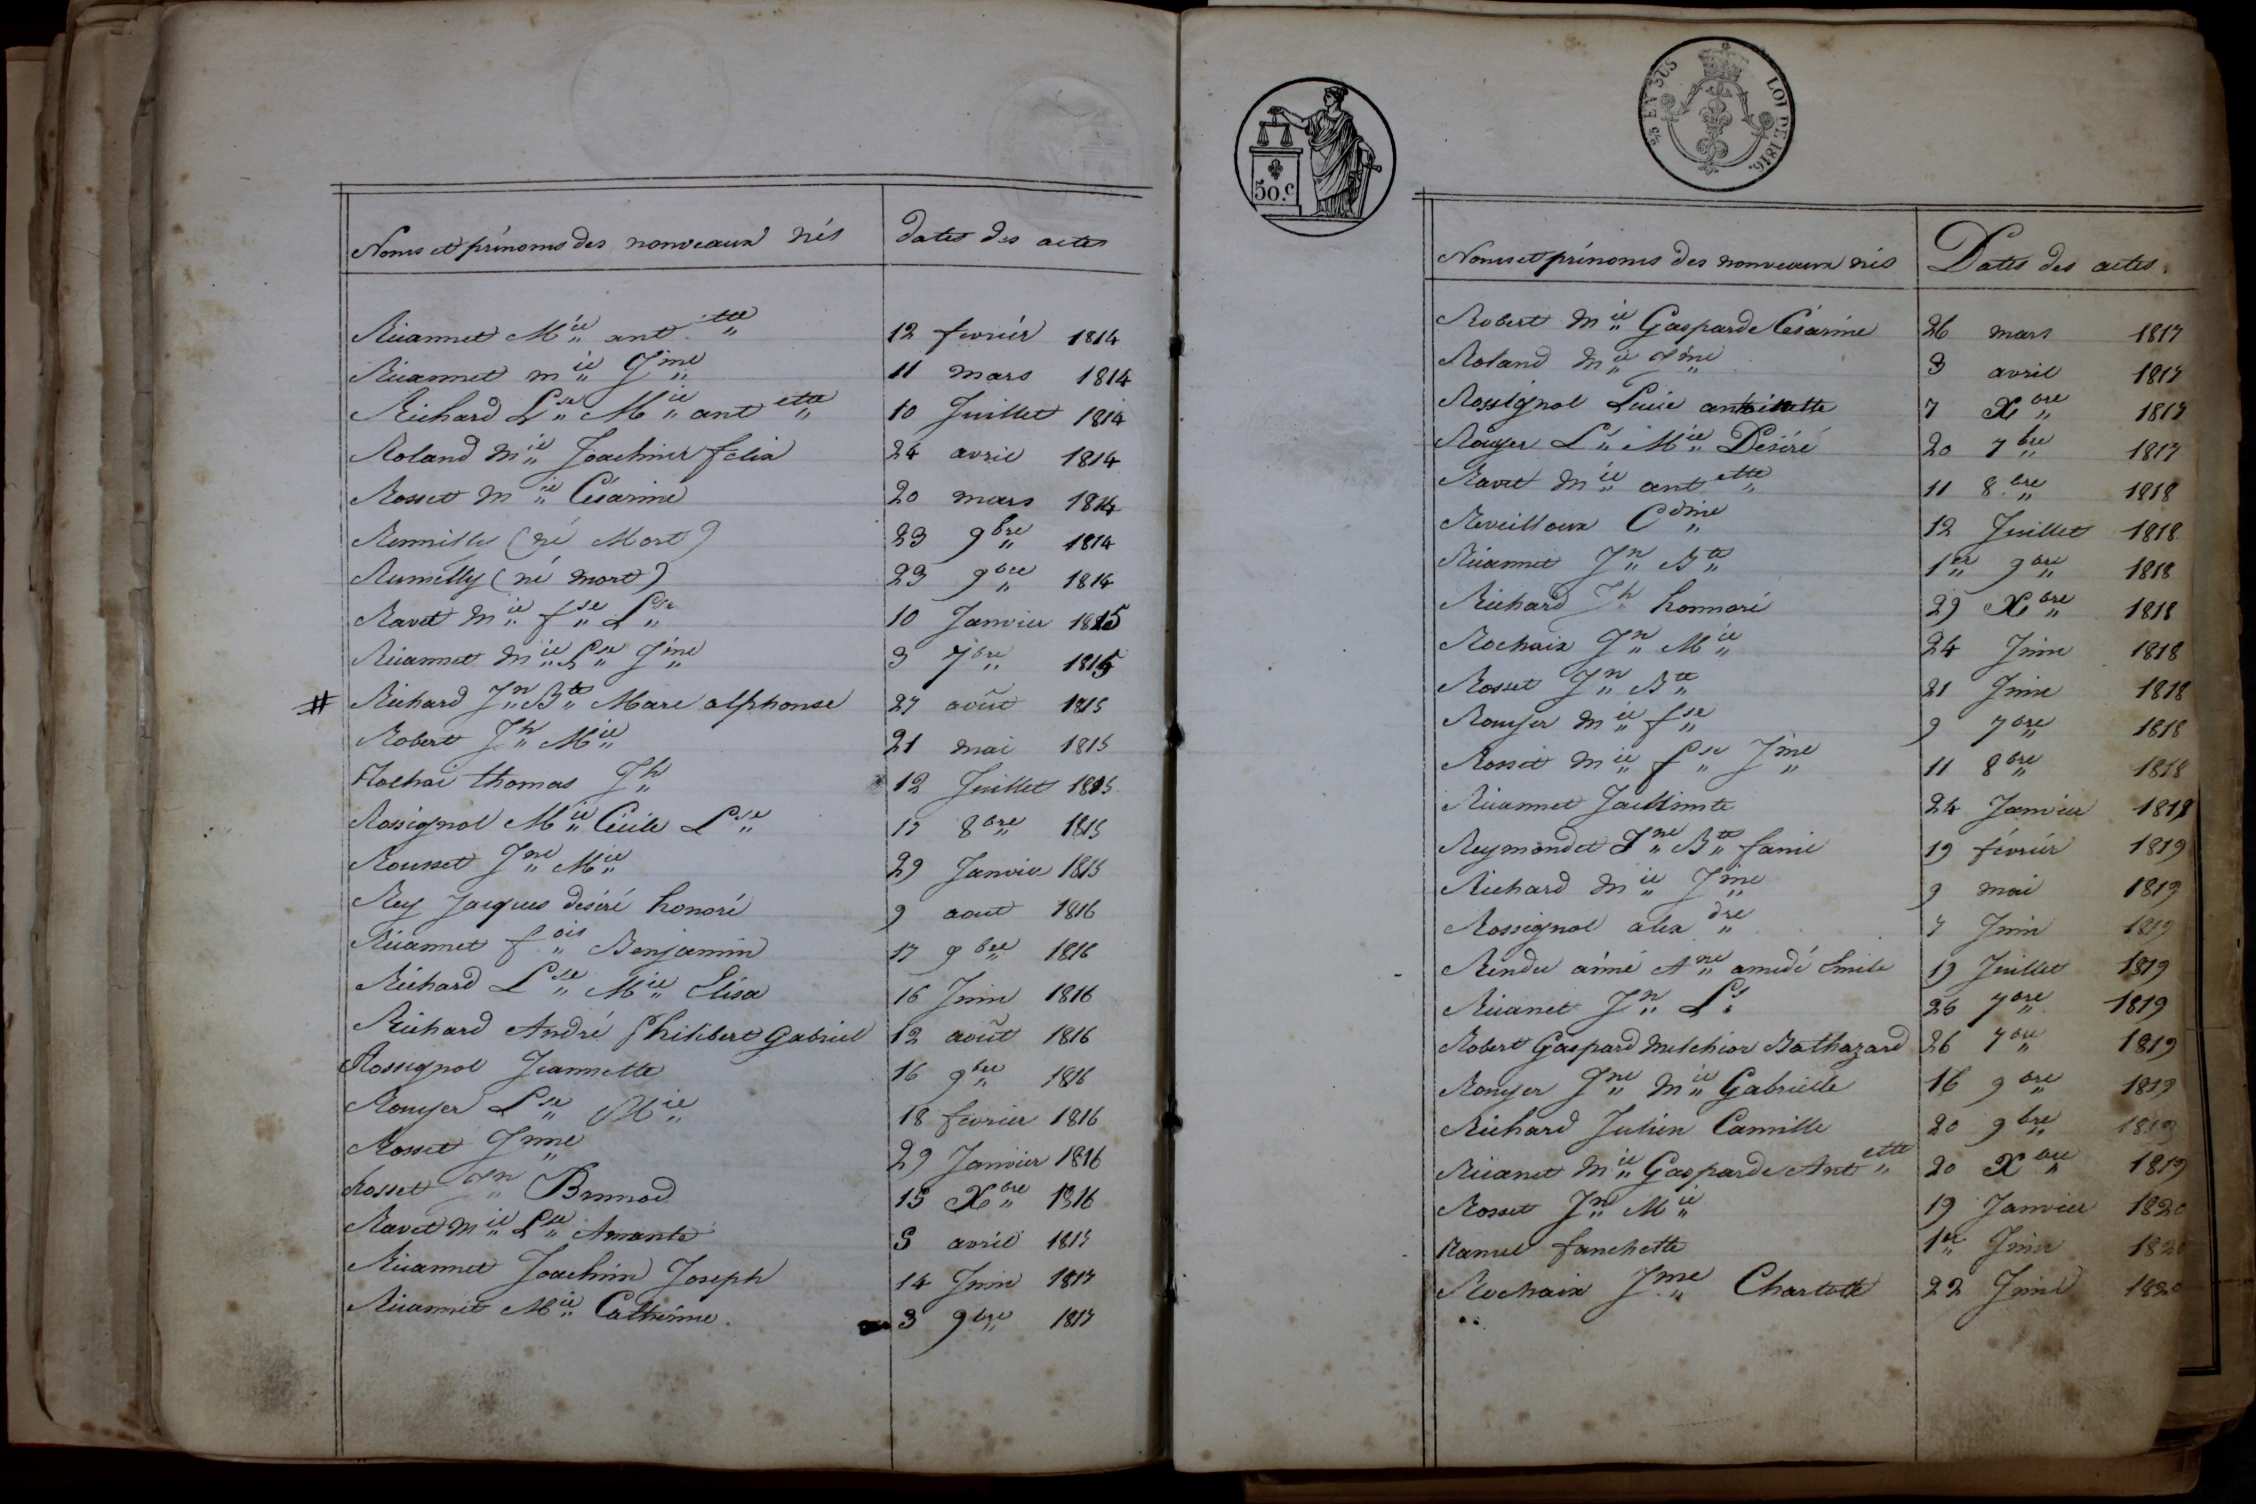 Noms et prénoms des nouveaux nés | dates des actes
Ruannet Mie ant tte 12 fevrier 1814
Ruannet mie Jme 11 mars 1814
Richard Lse Mie ant ette 10 Juillet 1814
Roland mie Joachim felix 24 avril 1814
Rosset mie Césarine 20 mars 1814
Rumilly (né Mort) 23 9bre 1814
Rumilly (né mort) 23 9bre 1814
Ravet mie fse Lse 10 Janvier 1815
Ruannet mie Lse Jme 3 7bre 1815
# Richard Jn Bte Marc alphonse 27 août 1815
Robert Jh Mie 21 mai 1815
Rochai thomas Jh 12 Juillet 1815
Rossignol Mie Cécile Lse 17 8bre 1815
Rousset Jne Mie 29 Janvier 1815
Rey Jacques désiré honoré 9 aout 1816
Ruannet fois Benjamin 17 9bre 1816
Richard Lse Mie Elisa 16 Juin 1816
Richard André Philibert Gabriel 12 août 1816
Rossignol Jeannette 16 9bre 1816
Rouyer Lse Mie 18 fevrier 1816
Rosset Jme 29 Janvier 1816
Rosset Jn Brunod 15 Xbre 1816
Ravet Mie Lse Amante 5 avril 1817
Ruannet Joachim Joseph 14 Juin 1817
Ruannet Mie Cathérine. 3 9bre 1817
50.c
EN SUS LOI DE 1816.
Noms et prénoms des nouveaux nés | Dates des actes.
Robert mie Gasparde Césarine 26 mars 1817
Roland mie Jme 3 avril 1817
Rossignol Lucie antoinette 7 Xbre 1817
Rouyer Ls Mie Désiré 20 7bre 1817
Ravet mie ant ette 11 8bre 1818
Reveilloux Cdme 12 Juillet 1818
Ruannet Jn Bte 1er 9bre 1818
Richard Jh honnoré 29 Xbre 1818
Rochaix Jn Mie 24 Juin 1818
Rosset Jn Bte 21 Juin 1818
Rouyer mie fse 9 7bre 1818
Rosset mie fse Jme 11 8bre 1818
Ruannet Jacinte 24 Janvier 1819
Reymondet Jne Bte fanie 19 février 1819
Richard mie Jme 9 mai 1819
Rossignol alex dre 7 Juin 1819
Rendu aimé Ane amedé Emile 19 Juillet 1819
Ruanet Jn Ls 26 7bre 1819
Robert Gaspard melchior Bathazard 26 7bre 1819
Rouyer Jne mie Gabrielle 16 9bre 1819
Richard Julien Camille 20 9bre 1819
Ruanet mie Gasparde Ant ette 20 Xbre 1819
Rosset Jn Mie 19 Janvier 1820
Ramel fanchette 1er Juin 1820
Rochaix Jme Charlotte 22 Juin 1820